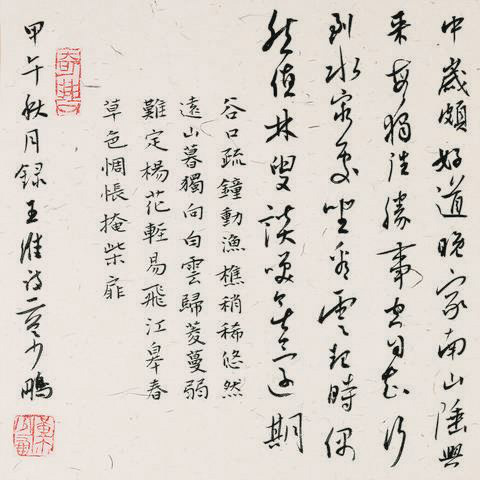 中歲頗好道晚家南山陲興
来每獨往勝事空自知行
到水窮處坐看雲起時偶
然值林叟談笑無還期
谷口疏鐘動漁樵稍稀悠然
遠山暮獨向白雲歸菱蔓弱
難定楊花輕易飛江皋春
草色惆悵掩柴扉
甲午秋月録王維诗二首少鵬